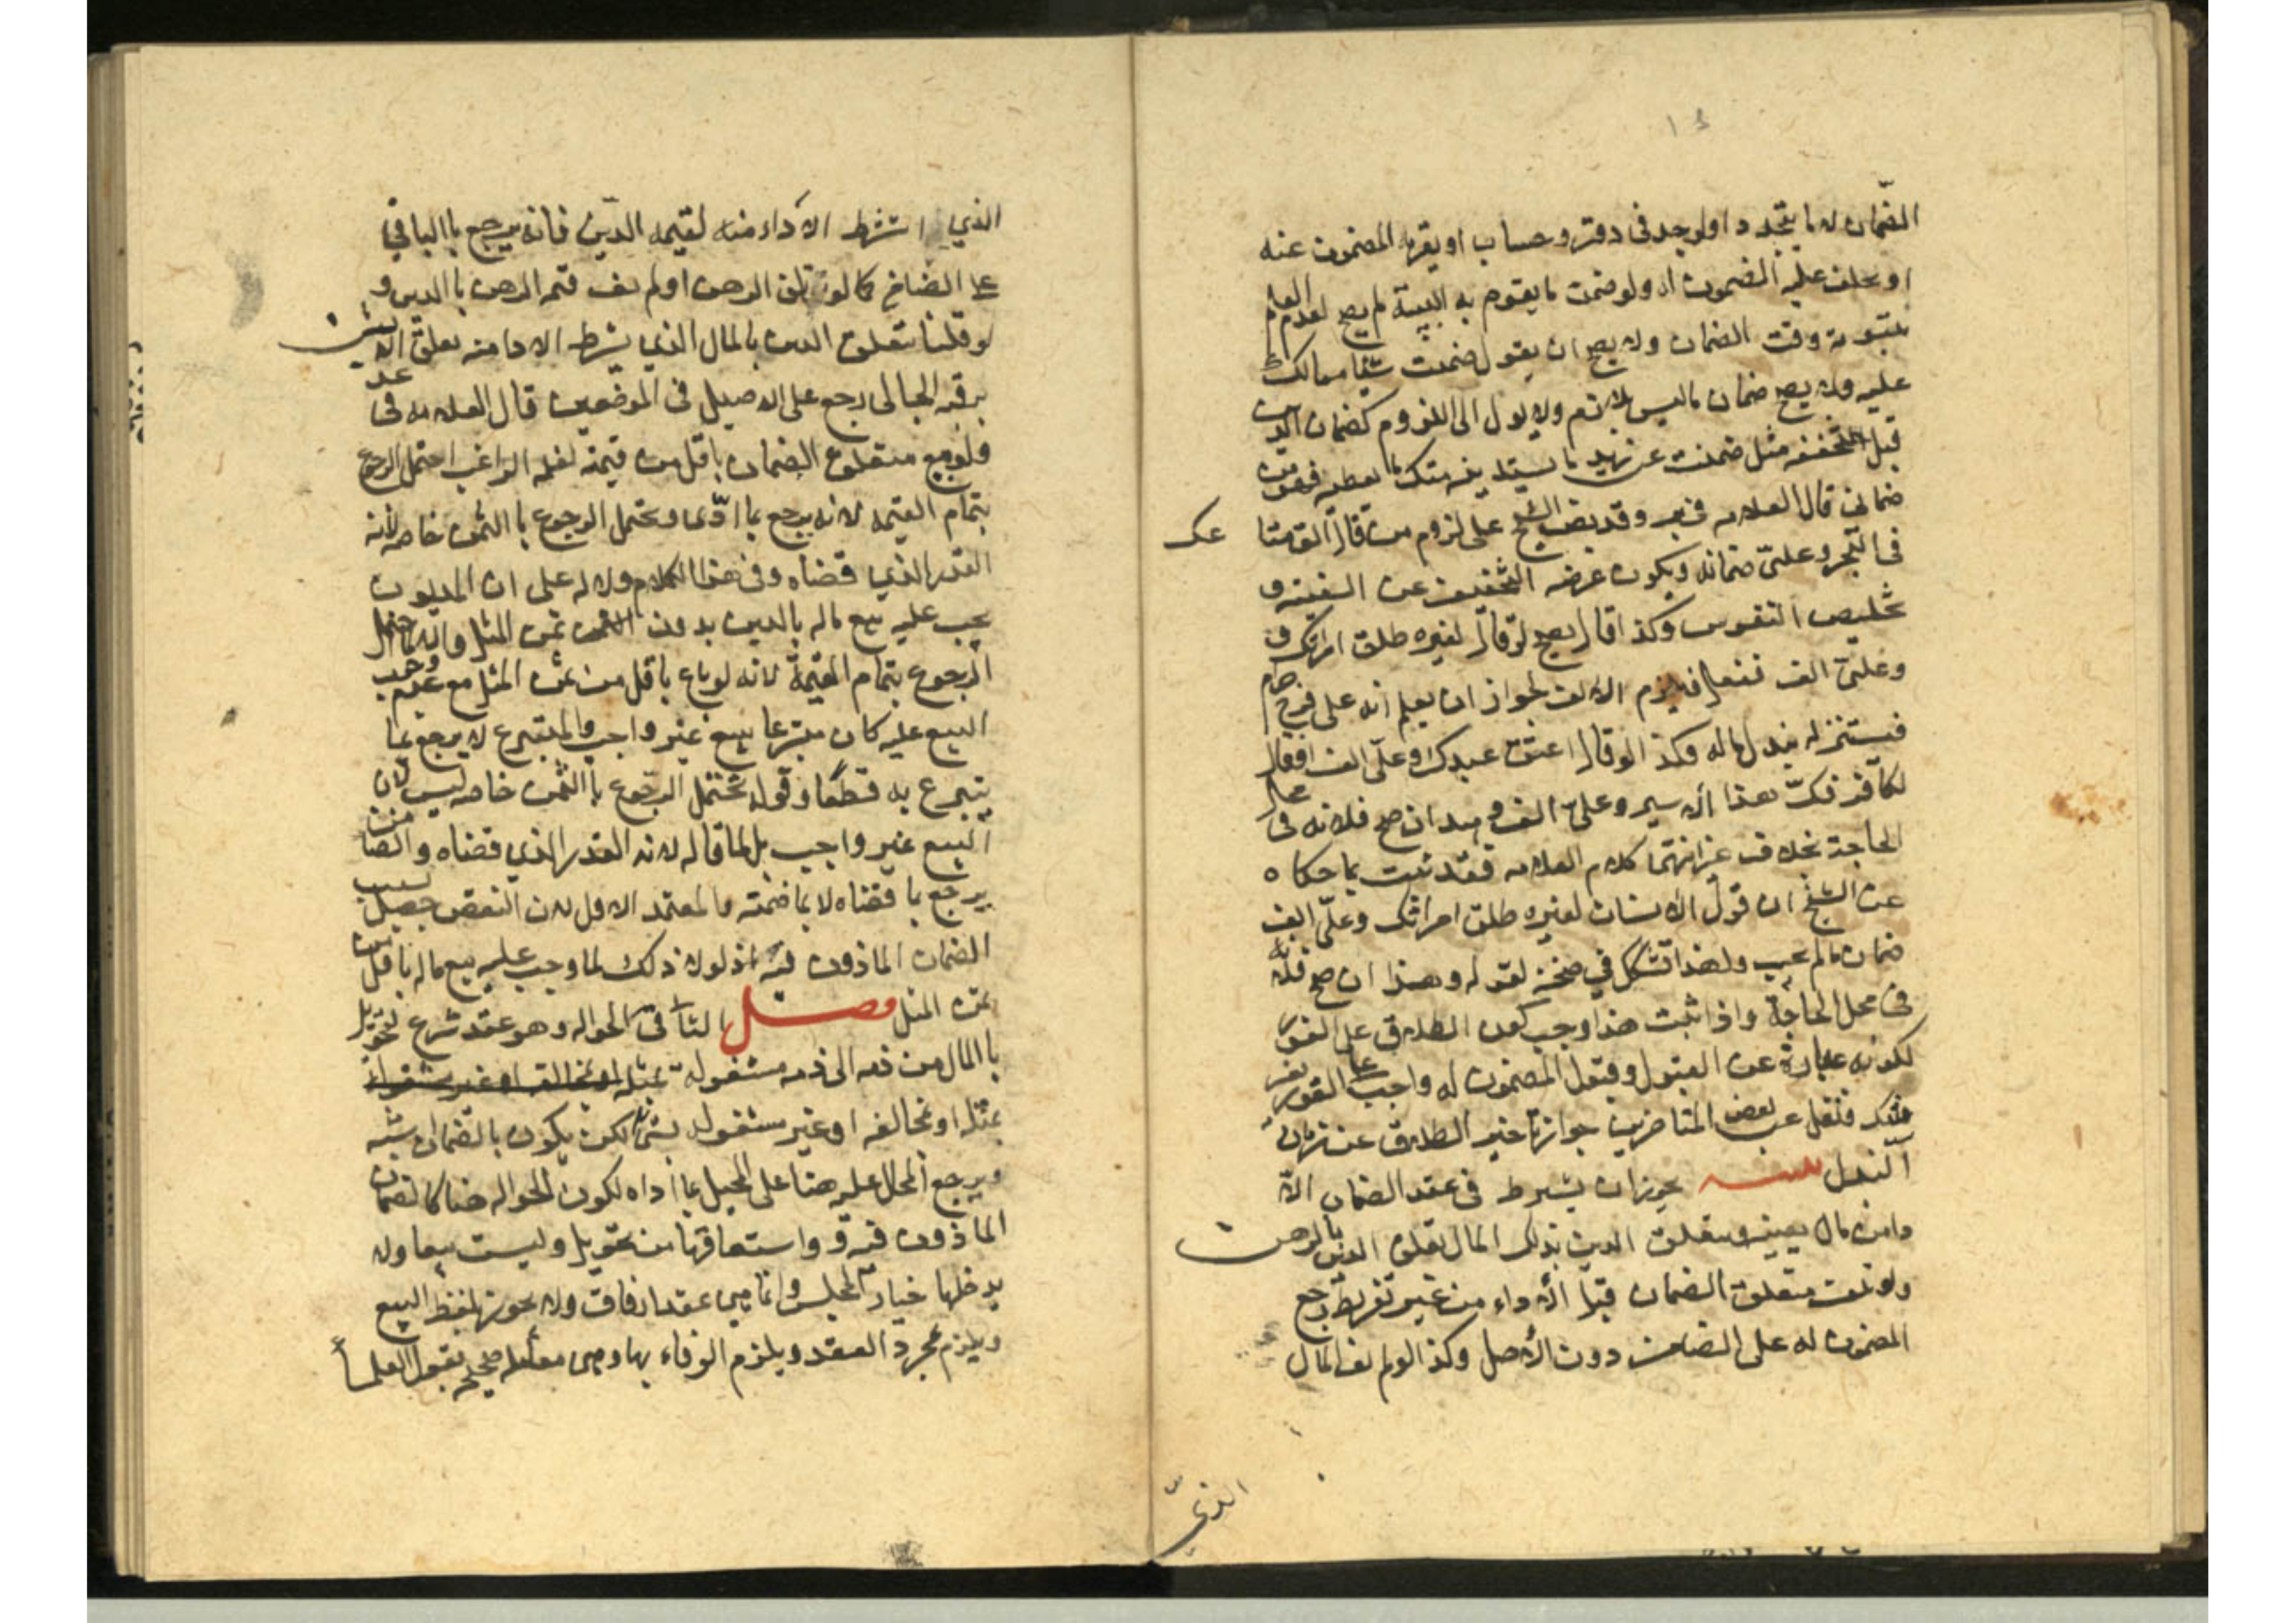 ١٤
الضمان لا ما يتجدد او لوجد فى دفتر وحساب او يقر به المضمون عنه
او يحلف عليه المضمون له ولو ضمن ما يقوم به البينة لم يصح لعدم العلم
بثبوته وقت الضمان ولا يصح ان يقول ضمنت شيئا مما لك
عليه ولا يصح ضمان ما ليس بلازم ولا يول الى اللزوم كضمان الدين
قبل مثل ضمنت عن زيد ما يستدينه منك ما يعطيه فهو من
ضمانى قال العلامه فى وقد نص الشيخ على لزوم من قال الق متاعك
فى البحر وعلىّ ضمانه ويكون غرضه التخفيف عن السفينه و
تخليص النفوس وكذا قال يصح لو قال لغيره طلق امراتك و
وعلىّ الف ففعل فيلزم الالف لجواز ان يعلم انه على فرج حرام
فيستنزله ببذل ماله وكذا لو قال اعتق عبدك وعلىّ الف او قال
لكافر فك هذا الاسير وعلىّ الف و ان صح فلانه فى محل
الحاجة بخلاف كلام العلامه فقد ثبت بما حكاه
عن الشيخ ان قول الانسان لغيره طلق امراتك وعلىّ الف
ضمان ما لم يجب ولهذا تشكل في صحته لقوله وهذا ان صح فلانه
فى محل الحاجة واذا ثبت هذا وجب كون الطلاق على الفور
لكونه عبارة عن القبول وقبول المضمون له واجب على الفور
فنقل عن بعض المتاخرين جواز تاخير الطلاق عن زمان
البذل يجوز ان يشترط فى عقد الضمان الا
دا من مال بعينه ويتعلق الدين بذلك المال تعلق الدين بالرهن
ولو تلف متعلق الضمان قبل الاداء من غير تفريط رجع
المضمون له على الضامن دون الأصل وكذا لو لم يف المال
الذي
الذي اشترط الاداء منه لقيمه الدين فانه يرجع باالباقي
على الضامن كما لو تلف الرهن او لم يف قيمه الرهن باالدين و
لو قلنا يتعلق الدين بالمال الذي يشرط الادا منه تعلق الارش
برقبه الجانى رجع على الاصيل فى الموضعين قال العلامه فى عد
ولو بيع متعلق الضمان باقل من قيمته لقله الراغب احتمل الرجوع
بتمام القيمه لانه يرجع بما ادّى ويحتمل الرجوع باالثمن خاصه لأنه
القدر الذي قضاه وفى هذا الكلام دلاله على ان المديون
يجب عليه بيع ماله بالدين بدون ثمن المثل والا لما احتمل
الرجوع بتمام القيمة لانه لو باع باقل من ثمن المثل مع عدم وجوب
البيع عليه كان متبرعا ببيع غير واجب والمتبرع لا يرجع بما
يتبرع به قطعًا وقوله يحتمل الرجوع باالثمن خاصه ليس لان
البيع غير واجب بل لما قاله لانه القدر الذي قضاه والضامن
يرجع بما قضاه لا بما ضمنه والمعتمد الاول لان النقص حصل بسبب
الضمان الماذون فيه اذ لولا ذلك لما وجب عليه بيع ماله باقل من
ثمن المثل فصل الثانى فى الحواله وهو عقد شرع لتحويل
باالمال من ذمه الى ذمه مشغولة بمثله او بخالفه او غير مشغوله
بمثله او بخالفه او غير مشغوله بشئ لكن يكون بالضمان شبه
ويرجع المحال عليه هنا على المحيل بما اداه لكون الحواله هنا كالضمان
الماذون فيه واشتقاقها من تحويل وليست بيعا ولا
يدخلها خيار المجلس وانما هى عقد ارفاق ولا يجوز بلفظ البيع
ويلزم بمجرد العقد ويلزم الوفاء بها وهى معامله صحيحه بقول العلمأ